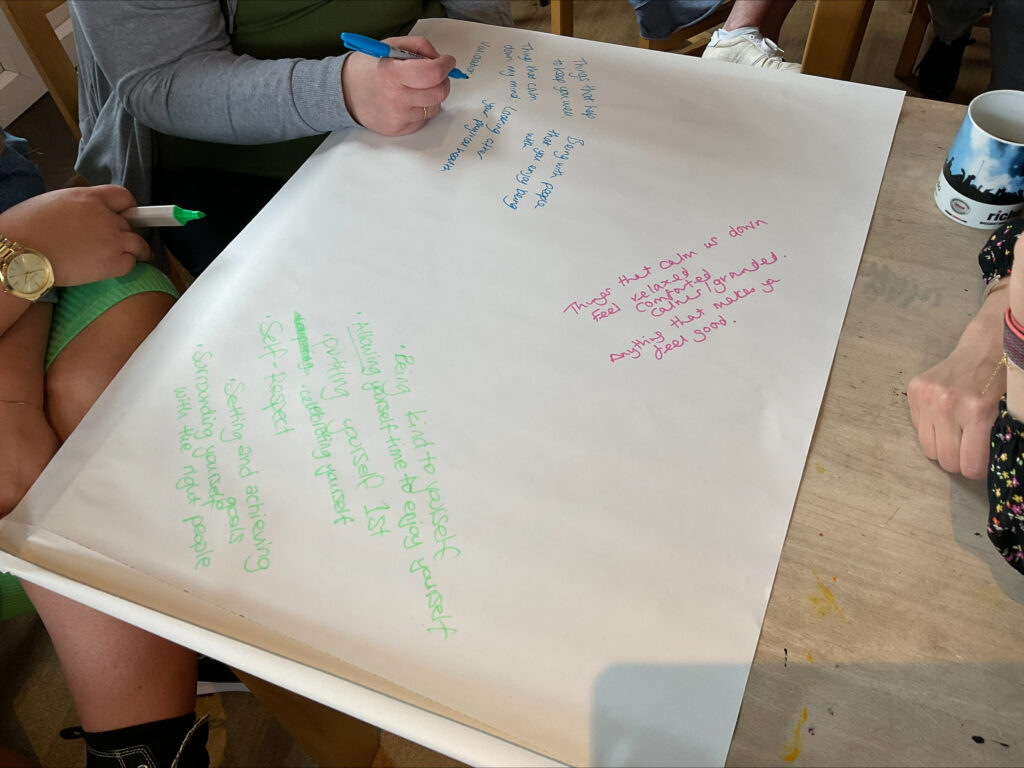 Things that help
to keep you well
Being with people
that you enjoy being
with
Things that calm
down my mind
Looking after
your physical health
Things that calm us down
Feel relaxed
comforted
calmer / grounded.
Anything that makes ya
feel good.
· Being kind to yourself
· Allowing yourself time to enjoy yourself
· Putting yourself 1st
· celebrating yourself
· Self-Respect
· Setting and achieving
goals
· Sorrounding yourself
with the right people
rich